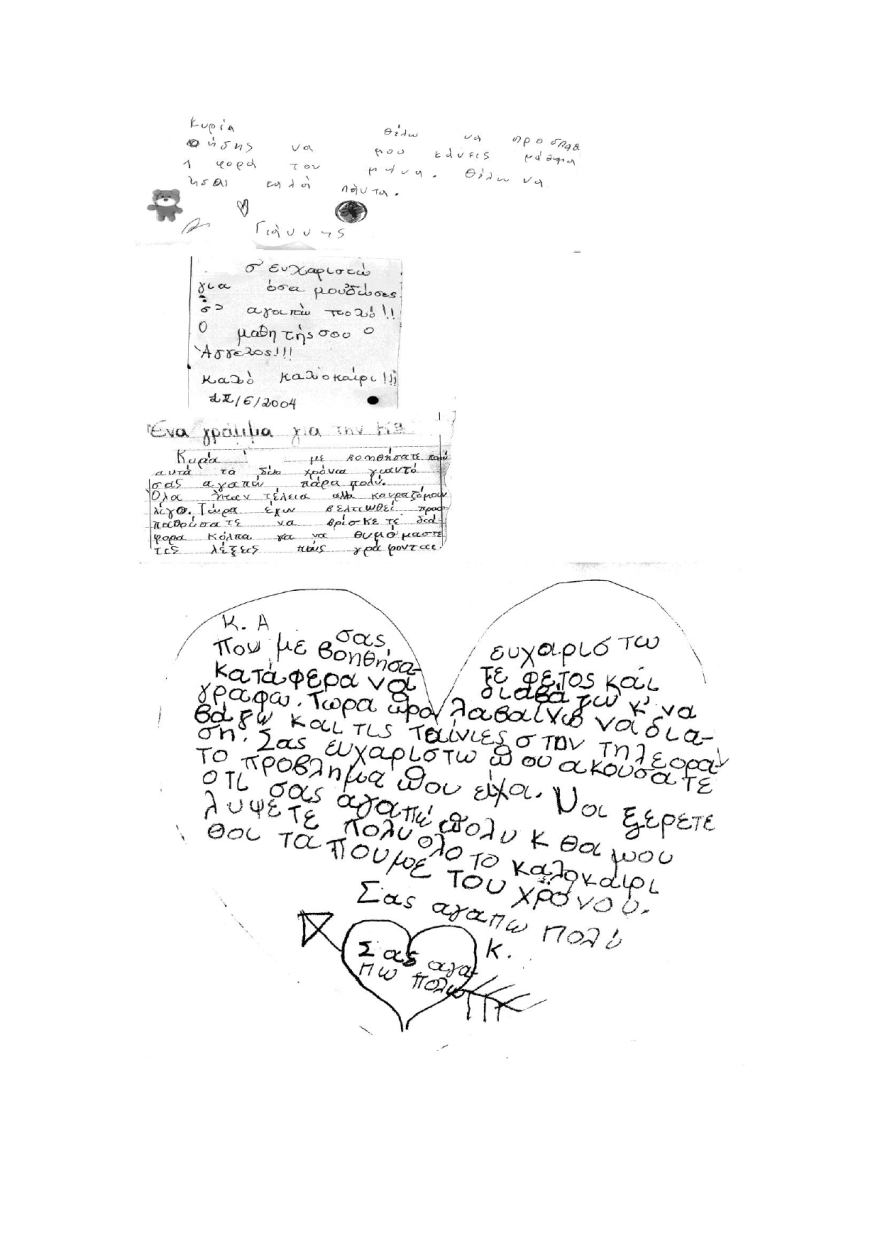 Κυρία θέλω να προσπαθ
ήσης να μου κάνεις μάθημα
1 φορά τον μήνα. θέλω να
ήσαι καλά πάντα.
Γιάννης
σ' ευχαριστώ
για όσα μου δώσες
σ' αγαπώ πολύ!!
Ο μαθητής σου ο
Άγγελος!!!
καλό καλοκαίρι!!!
/6/2004
Ένα γράμμα για την
Κυρά με βοηθήσατε πολύ
αυτά τα δύο χρόνια γιαυτό
σας αγαπώ πάρα πολύ.
Όλα ήταν τέλεια αλλα κουραζόμουν
λίγο. Τώρα έχω βελτιωθεί προσ
παθούσατε να βρίσκετε διά
φορα κόλπα για να θυμόμαστε
τις λέξεις πώς γράφονται.
Κ. Α
σας ευχαριστω
που με βοηθησα-
τε φετος και
καταφερα να διαβαζω κ' να
γραφω. Τωρα προλαβαίνω να δια-
βαζω και τις ταινιες στην τηλεορα
ση. Σας ευχαριστω που ακουσατε
το προβλημα που είχα. Ναι ξερετε
οτι σας αγαπώ πολυ κ θα μου
λυψετε πολυ ολο το καλοκαιρι
θα τα πουμε του χρονου.
Σας αγαπω πολύ
Κ.
Σας αγα-
πω πολυ